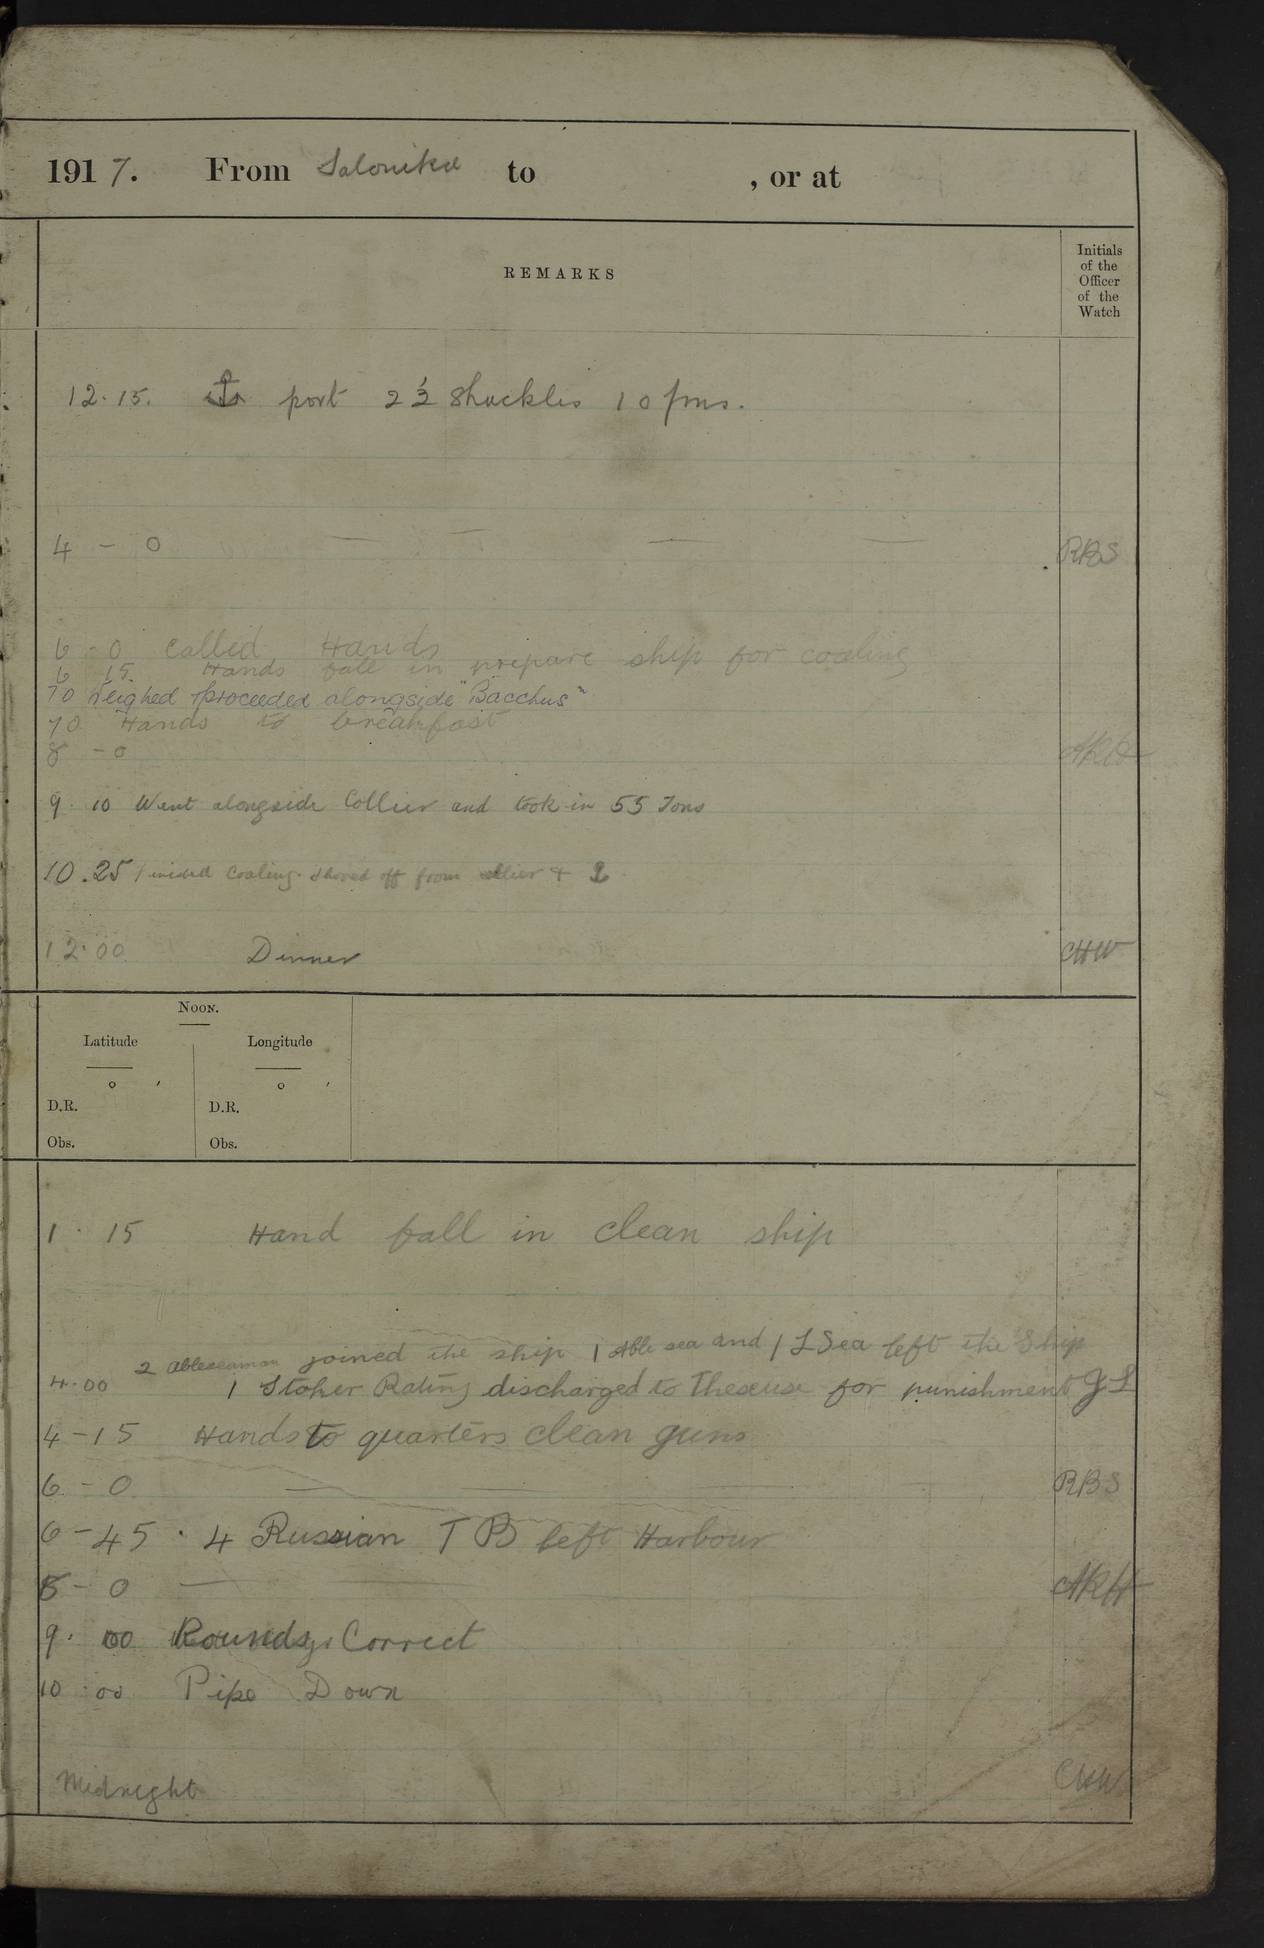 1917. From Salonika to , or at
REMARKS
Initials
of the
Officer
of the
Watch
12.15. ⚓ port 2½ Shackles 10 fms.
4 - 0 — — — — RBS
6 - 0 Called Hands
6 15. Hands fall in prepare ship for coaling
70 Weighed proceeded alongside "Bacchus"
70 Hands to breakfast
8 - 0 ARH
9. 10 Went alongside Collier and took in 55 Tons
10.25 Finished Coaling. Shoved off from collier +
12.00 Dinner CHW
Noon.
Latitude Longitude
° ′ ° ′
D.R. D.R.
Obs. Obs.
1. 15 Hand fall in clean ship
2 ableseaman joined the ship 1 Able sea and 1 L Sea left the Ship
4.00 1 Stoker Rating discharged to Theseuse for punishment JL
4-15 Hands to quarters clean guns
6 - 0 — — — RBS
6-45. 4 Russian T B left Harbour
8 - 0 — — ARH
9. 00 Rounds. Correct
10:00 Pipe Down
Midnight CHW